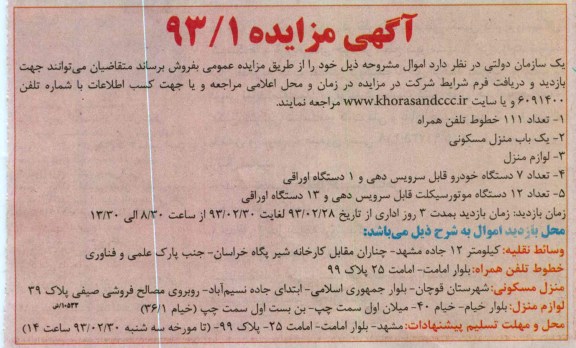 آگهی مزایده ۹۳/۱
یک سازمان دولتی در نظر دارد اموال مشروحه ذیل خود را از طریق مزایده عمومی بفروش برساند متقاضیان می‌توانند جهت
بازدید و دریافت فرم شرایط شرکت در مزایده در زمان و محل اعلامی مراجعه و یا جهت کسب اطلاعات با شماره تلفن
۶۰۹۱۴۰۰ و یا سایت www.khorasandccc.ir مراجعه نمایند.
۱- تعداد ۱۱۱ خطوط تلفن همراه
۲- یک باب منزل مسکونی
۳- لوازم منزل
۴- تعداد ۷ دستگاه خودرو قابل سرویس دهی و ۱ دستگاه اوراقی
۵- تعداد ۱۲ دستگاه موتورسیکلت قابل سرویس دهی و ۱۳ دستگاه اوراقی
زمان بازدید: زمان بازدید بمدت ۳ روز اداری از تاریخ ۹۳/۰۲/۲۸ لغایت ۹۳/۰۲/۳۰ از ساعت ۸/۳۰ الی ۱۳/۳۰
محل بازدید اموال به شرح ذیل می‌باشد:
وسائط نقلیه: کیلومتر ۱۲ جاده مشهد- چناران مقابل کارخانه شیر پگاه خراسان- جنب پارک علمی و فناوری
خطوط تلفن همراه: بلوار امامت- امامت ۲۵ پلاک ۹۹
منزل مسکونی: شهرستان قوچان- بلوار جمهوری اسلامی- ابتدای جاده نسیم‌آباد- روبروی مصالح فروشی صیفی پلاک ۳۹
لوازم منزل: بلوار خیام- خیام ۴۰- میلان اول سمت چپ- بن بست اول سمت چپ (خیام ۳۶/۱)
محل و مهلت تسلیم پیشنهادات: مشهد- بلوار امامت- امامت ۲۵- پلاک ۹۹- (تا مورخه سه شنبه ۹۳/۰۲/۳۰ ساعت ۱۴)